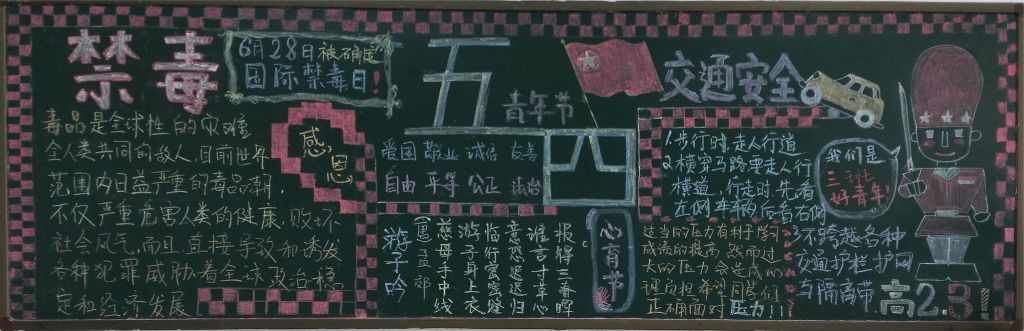 禁毒
6月28日被确定
国际禁毒日!
毒品是全球性的灾难
全人类共同的敌人,目前世界
范围内日益严重的毒品潮,
不仅严重危害人类的健康,败坏
社会风气,而且直接导致和诱发
各种犯罪威胁着全球政治稳
定和经济发展
感恩
五四
青年节
爱国 敬业 诚信 友善
自由 平等 公正 法治
游子吟
(唐)孟郊
慈母手中线
游子身上衣
临行密密缝
意恐迟迟归
谁言寸草心
报得三春晖
心育节
交通安全
1.步行时,走人行道
2.横穿马路要走人行
横道,行走时,先看
左侧车辆后看右侧
3.不跨越各种
交通护栏护网
与隔离带
我们是
三
好青年!
过当的压力有利于学习
成绩的提高,然而过
大的压力会造成心
理向担希望同学们
正确面对压力!!
高2.3!